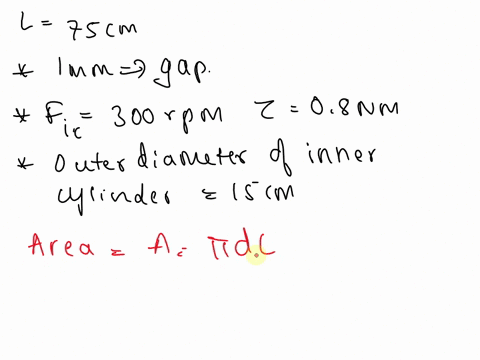 L = 75cm
* 1mm => gap.
* Fic = 300 rpm τ = 0.8 NM
* Outer diameter of inner
cylinder = 15cm
Area = A = πdL